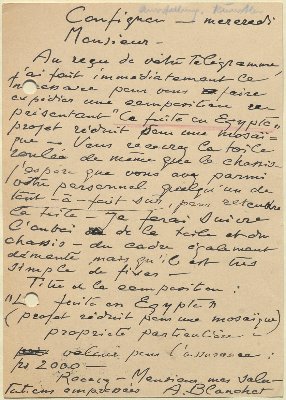 Confignon - mercredi
Monsieur -
Au reçu de votre Télégramme,
j'ai fait immédiatement le
nécessaire pour vous faire
expédier une composition re
présentant "la fuite en Egypte"
projet réduit pour une mosaï-
que - Vous recevrez la toile
roulée de même que le chassis
J'espère que vous avez parmi
votre personnel quelqu'un de
tout-à-fait sur, pour retendre
la toile - Je ferai suivre
l'envoi de la toile et du
chassis - du cadre également
démonté mais qu'il est très
simple de fixer -
Titre de la composition :
"La fuite en Egypte"
(projet réduit pour une mosaïque)
propriété particulière -
valeur pour l'assurance :
frs 2000 -
Recevez - Monsieur mes salu-
tations empressées A. Blanchet